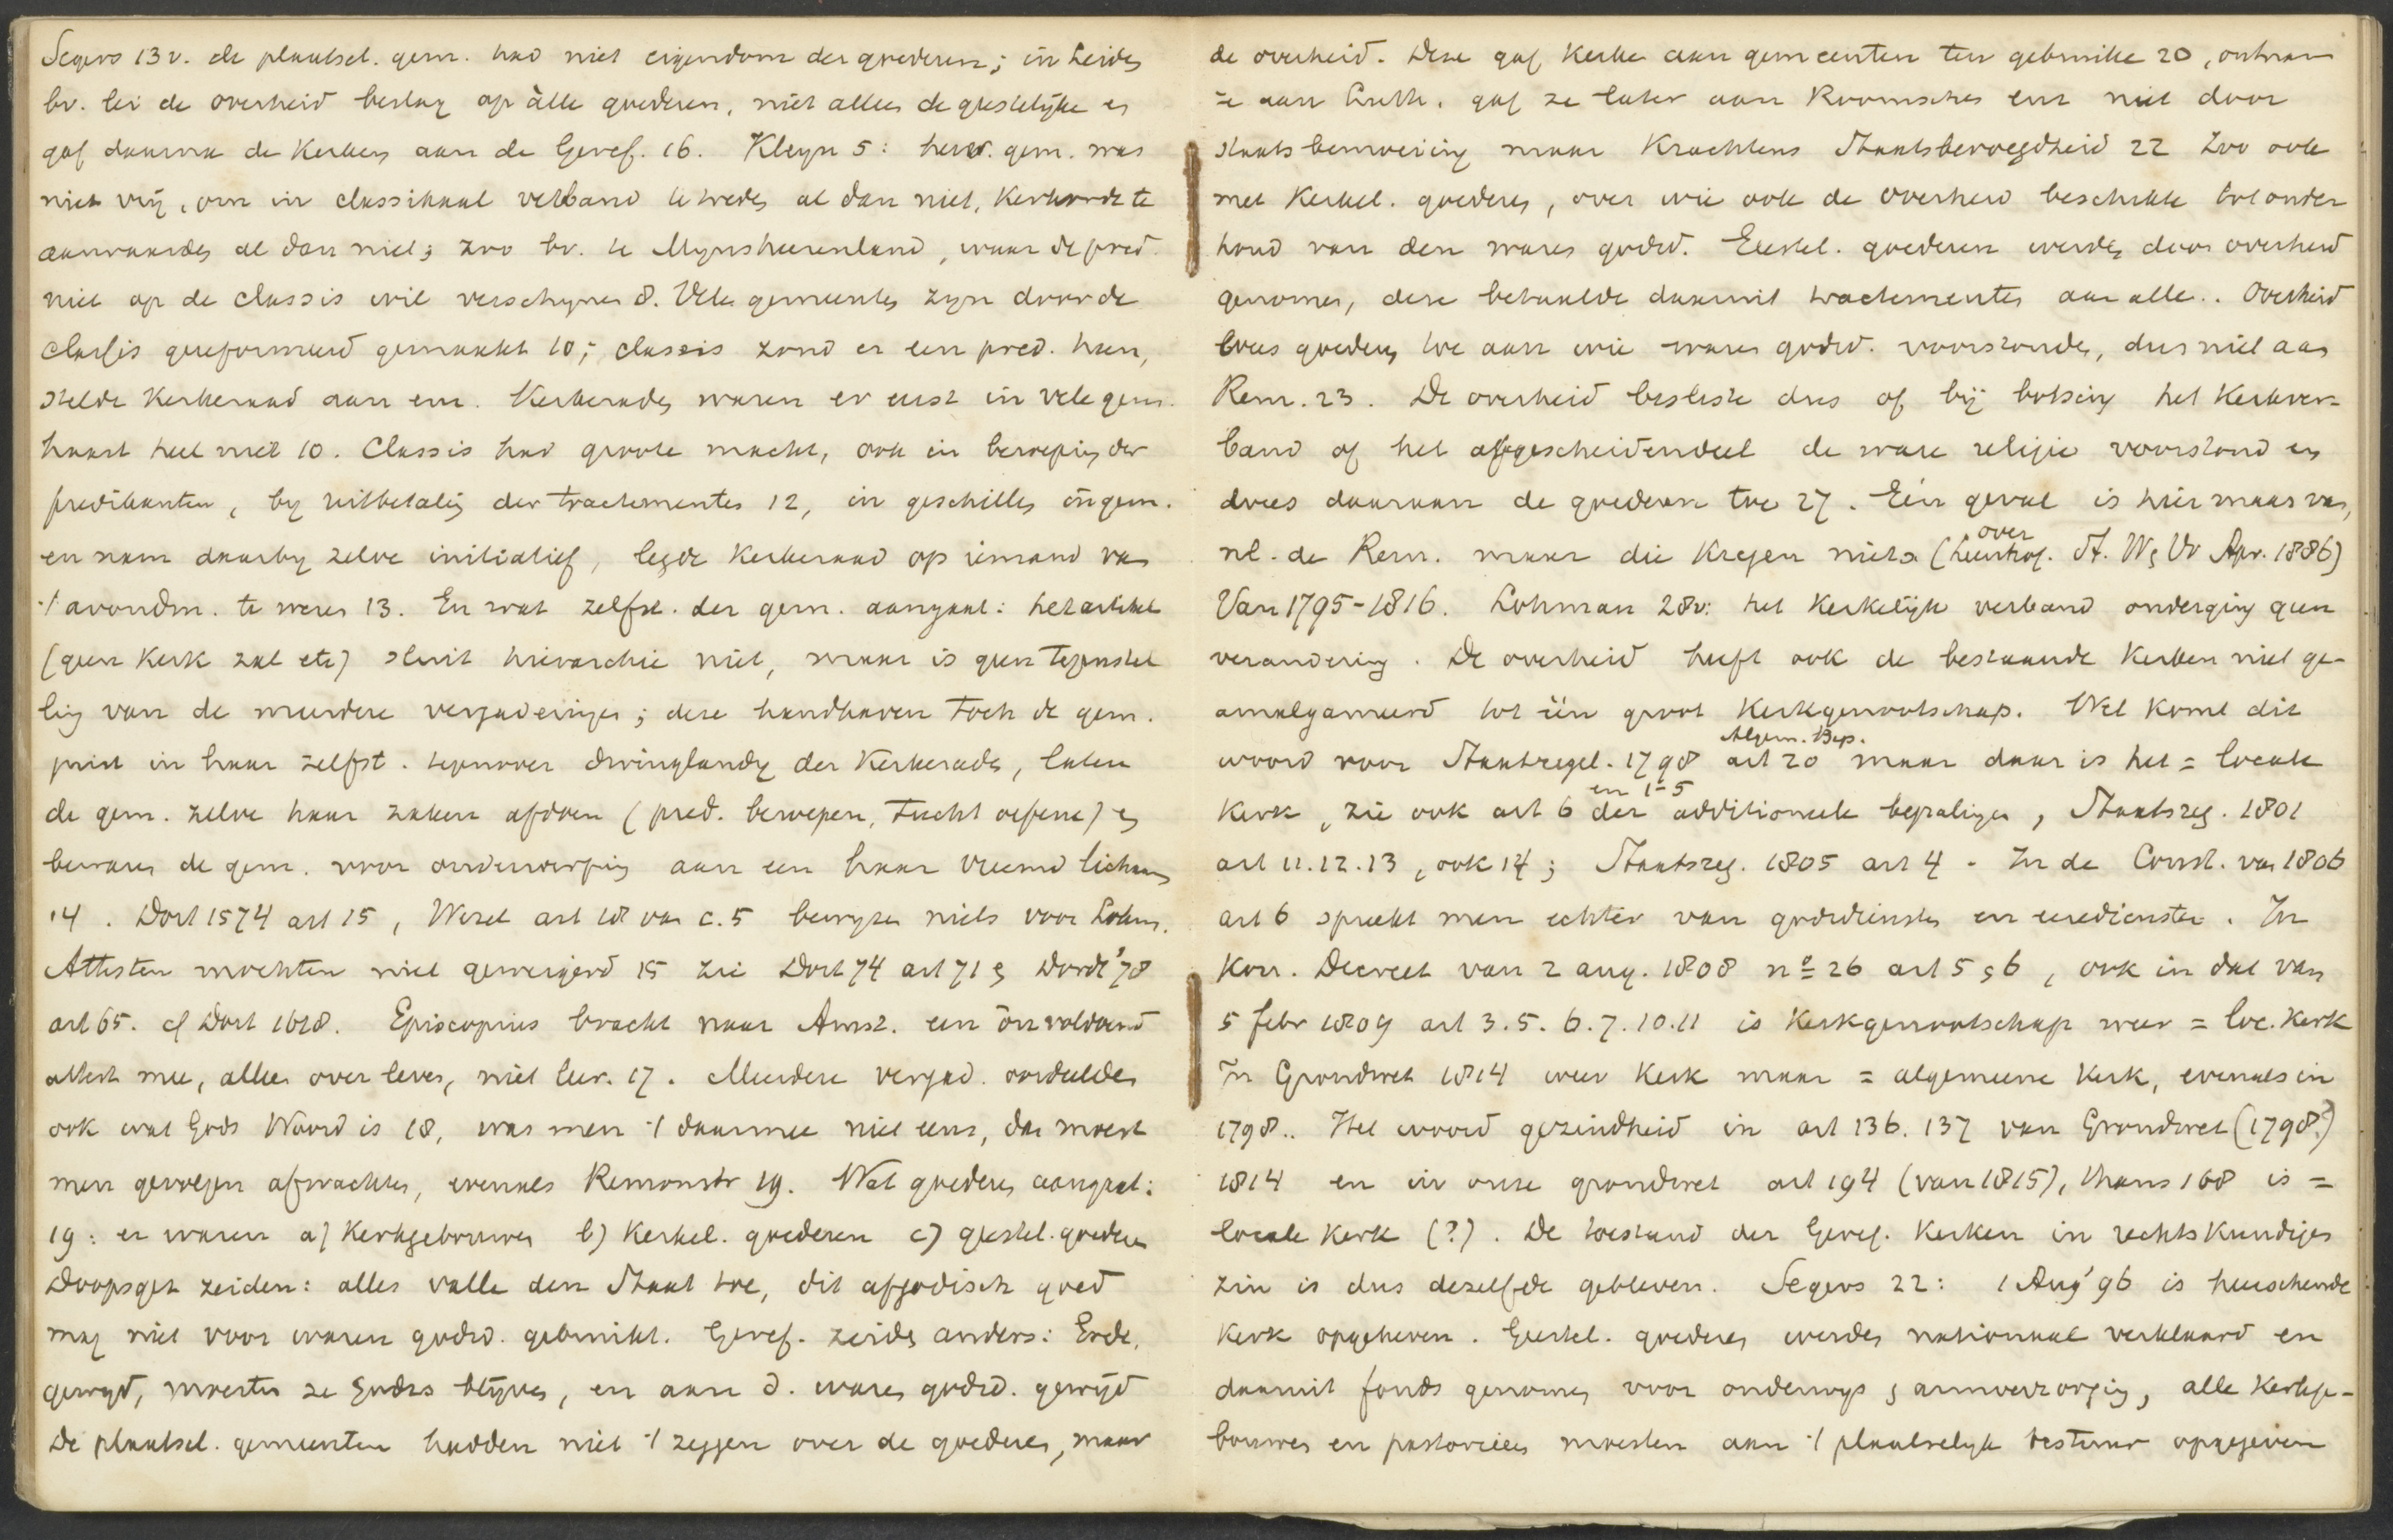 Segers 13v. de plaatsel. gem. had niet eigendom der goederen; in Leiden
bv. lei de overheid beslag op àlle goederen, niet alleen de geestelijke en
gaf daarna de Kerken aan de Geref. 16. Kleyn 5: herv. gem. was
niet vrij, om in classikaal verband te treden al dan niet, Kerkorde te
aanvaarden al dan niet; zoo bv. te Mynsheerenland, waar de pred.
niet op de classis wil verschynen 8. Vele gemeenten zyn door de
classis gereformeerd gemaakt 10; classis zond er een pred. heen,
stelde Kerkeraad aan enz. Kerkeraden waren er eerst in vele gem.
haast heel niet 10. Classis had groote macht, ook in beroeping der
predikanten, by uitbetaling der tractementen 12, in geschillen in gem.
en nam daarby zelve initiatief, legde Kerkeraad op iemand van
't avondm. te weren 13. En wat zelfst. der gem. aangaat: het artikel
(geen Kerk zal etc) sluit hierarchie uit, maar is geen tegenstel
ling van de meerdere vergaderingen; deze handhaven toch de gem.
juist in haar zelfst. tegenover dwinglandy der Kerkerads, laten
de gem. zelve haar zaken afdoen (pred. beroepen, tucht oefenen) en
bewaren de gem. voor onderwerping aan een haar vreemd lichaam
14. Dort 1574 art 15, Wesel art 18 van c. 5 bewyzen niets voor Lohm.
Attesten mochten niet geweigerd 15 zie Dort 74 art 71 & Dordt '78
art 65. cf Dort 1618. Episcopius bracht naar Amst. een onvoldoend
attest mee, alleen over leven, niet leer. 17. Meerdere vergad. oordeelden
ook wat Gods Woord is 18, was men 't daarmee niet eens, dan moest
men gevolgen afwachten, evenals Remonstr 19. Wat goederen aangaat:
19: er waren a) Kerkgebouwen b) Kerkel. goederen c) geestel. goederen
Doopsgez zeiden: alles valle den Staat toe, dit afgodisch goed
mag niet voor waren godsd. gebruikt. Geref. zeiden anders: Gode,
gewyd, moesten ze Godes blijven, en aan d. waren godsd. gewijd
De plaatsel. gemeenten hadden niet 't zeggen over de goederen, maar
de overheid. Deze gaf Kerken aan gemeenten ten gebruike 20, ontnam
ze aan Luth. gaf ze later aan Roomschen enz niet door
staatsbemoeiing maar Krachtens Staatsbevoegdheid 22 Zoo ook
met Kerkel. goederen, over wie ook de overheid beschikte tot onder
houd van den waren godsd. Geestel. goederen werden door overheid
genomen, deze betaalde daaruit tractementen aan alle.. Overheid
wees goederen toe aan wie waren godsd. voorstonden, dus niet aan
Rem. 23. De overheid besliste dus of bij botsing het Kerkver-
band of het afgescheiden deel de ware religie voorstond en
wees daaraan de goederen toe 27. Eén geval is hier maar van,
over
nl. de Rem. maar die Kregen niets (Leenhof. St. W & Vr Apr. 1886)
Van 1795-1816. Lohman 28v: het Kerkelijk verband onderging geen
verandering. De overheid heeft ook de bestaande Kerken niet ge-
amalgameerd tot één groot Kerkgenootschap. Wel komt dit
Algem. Bep.
woord voor Staatsregel. 1798 art 20 maar daar is het = locale
en 1-5
Kerk, zie ook art 6 der additioneele bepalingen, Staatsreg. 1801
art 11.12.13, ook 14; Staatsreg. 1805 art 4. In de Const. van 1806
art 6 spreekt men echter van godsdiensten en eerediensten. In
Kon. Decreet van 2 aug. 1808 no 26 art 5 & 6, ook in dat van
5 febr 1809 art 3.5.6.7.10.11 is Kerkgenootschap weer = loc. Kerk
In Grondwet 1814 weer Kerk maar = algemeene Kerk, evenals in
1798.. Het woord gezindheid in art 136. 137 van Grondwet (1798?)
1814 en in onze grondwet art 194 (van 1815), thans 168 is =
locale Kerk (?). De toestand der Geref. Kerken in rechtskundigen
zin is dus dezelfde gebleven. Segers 22: 1 Aug '96 is heerschende
Kerk opgeheven. Geestel. goederen werden nationaal verklaard en
daaruit fonds genomen voor onderwys & armverzorging, alle Kerkge-
bouwen en pastorieën moesten aan 't plaatselyk bestuur opgegeven